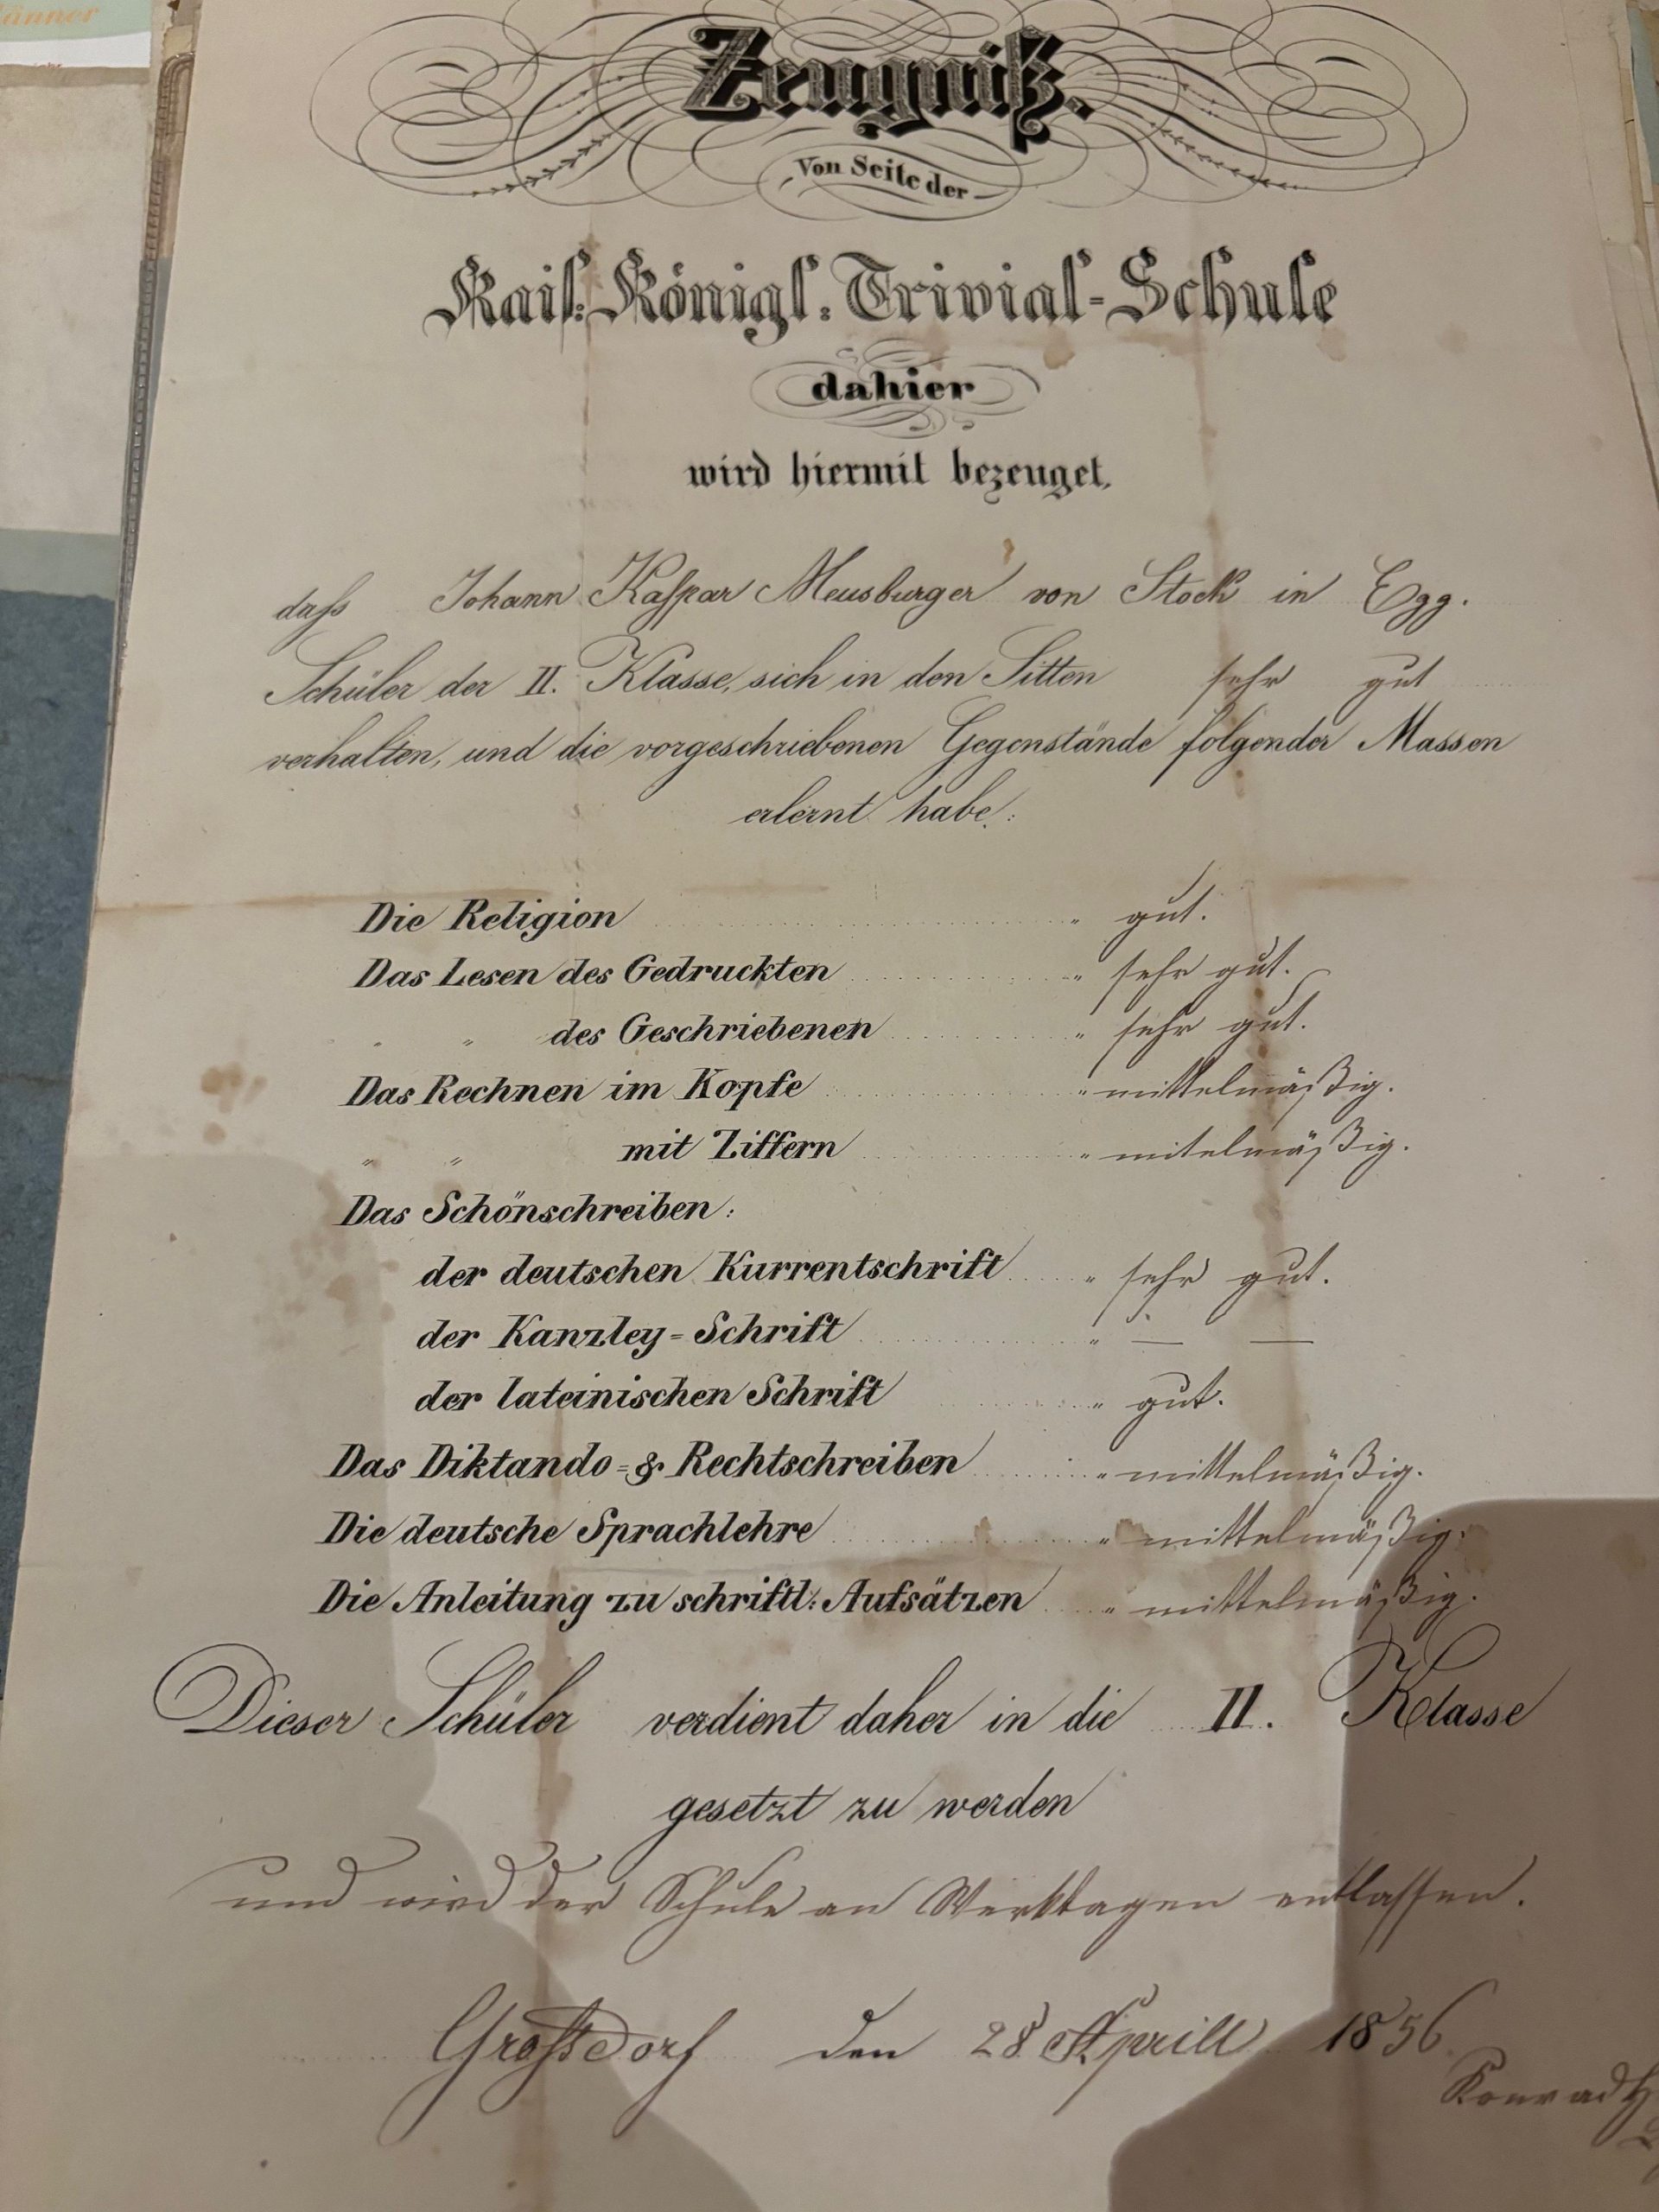 änner
Zeugniß.
Von Seite der
Kais: Königl: Trivial-Schule
dahier
wird hiermit bezeuget,
dass Johann Kaspar Meusburger von Stock in Egg.
Schüler der II. Klasse, sich in den Sitten sehr gut
verhalten, und die vorgeschriebenen Gegenstände folgender Massen
erlernt habe:
Die Religion " gut.
Das Lesen des Gedruckten " sehr gut.
" " des Geschriebenen " sehr gut.
Das Rechnen im Kopfe " mittelmäßig.
" " mit Ziffern " mitelmäßig.
Das Schönschreiben:
der deutschen Kurrentschrift " sehr gut.
der Kanzley-Schrift " — —
der lateinischen Schrift " gut.
Das Diktando-& Rechtschreiben " mittelmäßig.
Die deutsche Sprachlehre " mittelmäßig.
Die Anleitung zu schriftl: Aufsätzen " mittelmäßig.
Dieser Schüler verdient daher in die II. Klasse
gesetzt zu werden
und wird der Schule an Werktagen entlassen.
Großdorf den 28 Aprill 1856.
Konrad